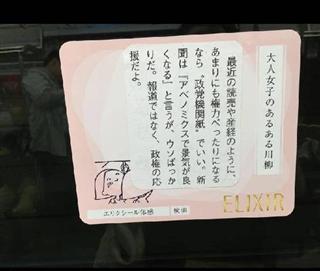 大人女子のあるある川柳
最近の読売や産経のように、
あまりにも権力べったりになる
なら“政党機関紙”でいい。新
聞は『アベノミクスで景気が良
くなる』と言うが、ウソばっか
りだ。報道ではなく、政権の応
援だよ。
ELIXIR
エリクシール体感 検索